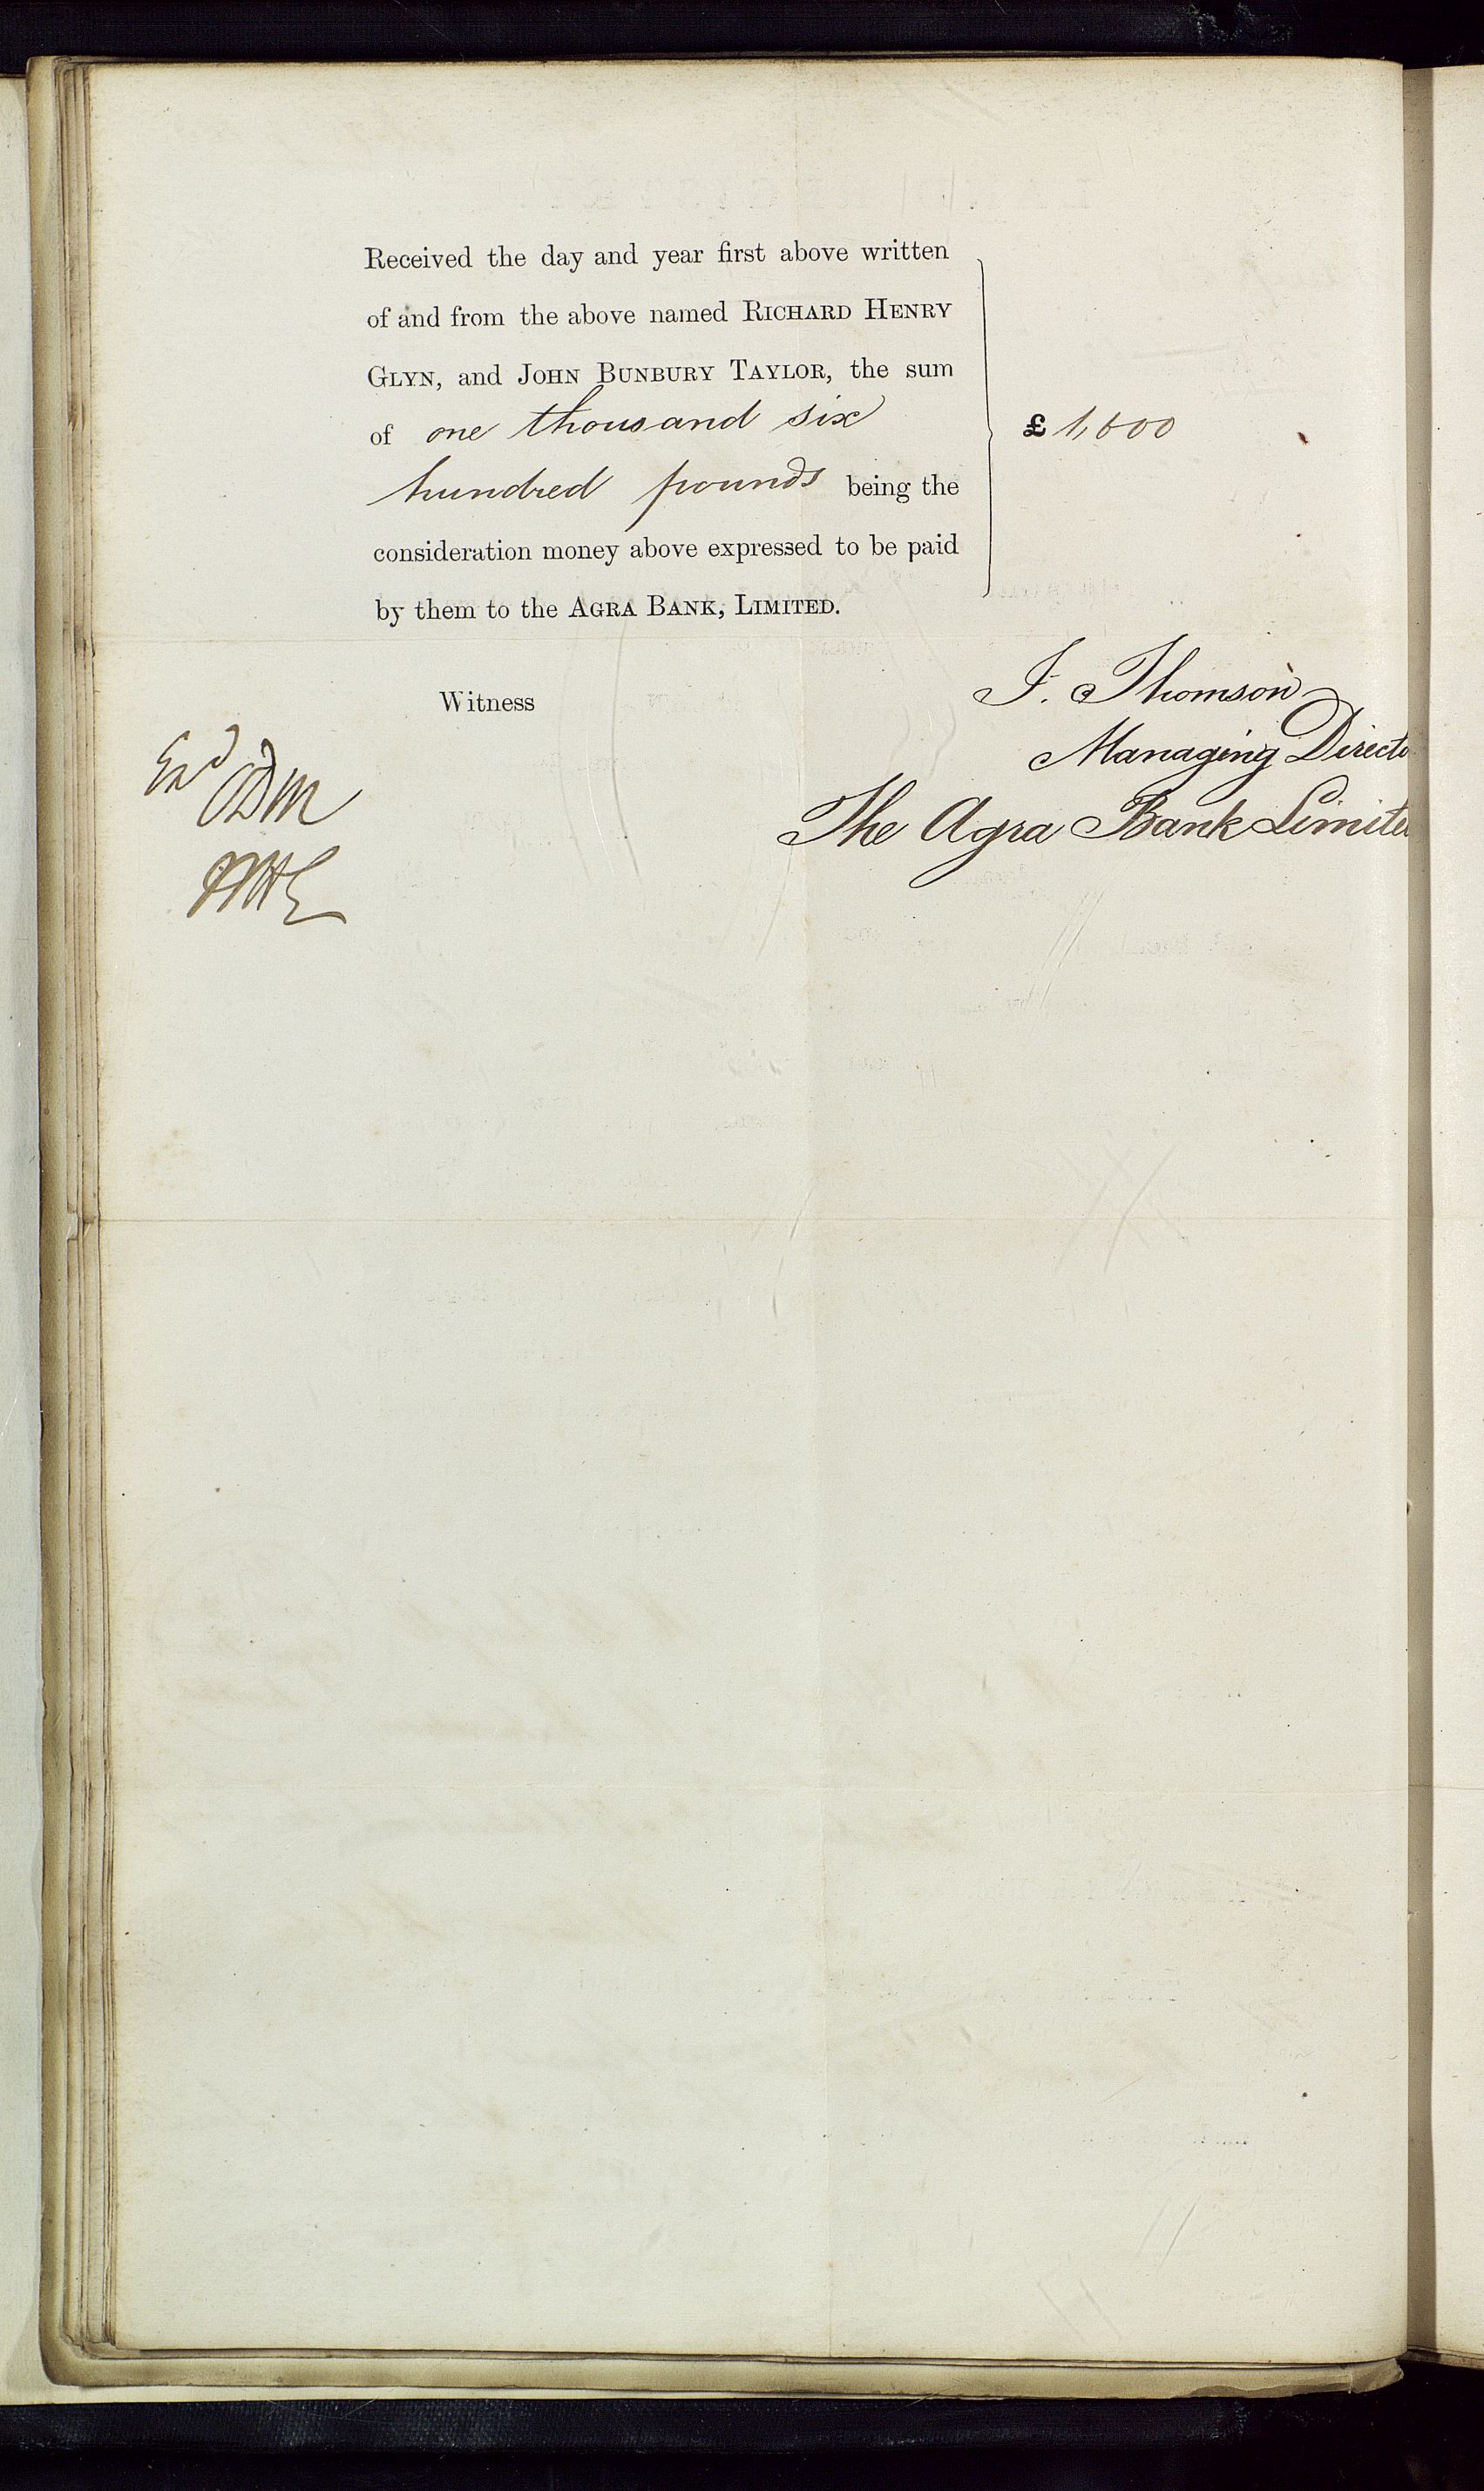 Received the day and year first above written
of and from the above named RICHARD HENRY
GLYN, and JOHN BUNBURY TAYLOR, the sum
of one thousand six
£ 1,600
hundred pounds being the
consideration money above expressed to be paid
by them to the AGRA BANK, LIMITED.
J. Thomson
Witness
Managing Directo
The Agra Bank Limited
Exd